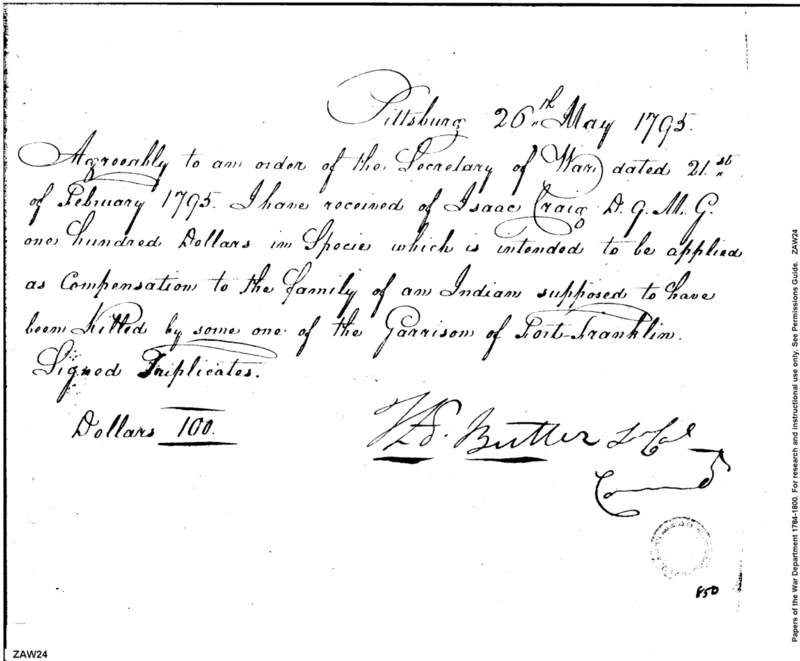 Pittsburg 26th May 1795.
Agreeably to an order of the Secretary of War dated 21st
of February 1795. I have received of Isaac Craig D. Q. M. G.
one hundred Dollars in Specie which is intended to be applied
as Compensation to the family of an Indian supposed to have
been killed by some one of the Garrison of Fort Franklin.
Signed Triplicates.
Dollars 100.
Thos. Butler Lt Col
Comdt
850
ZAW24
Papers of the War Department 1784-1800. For research and instructional use only. See Permissions Guide. ZAW24